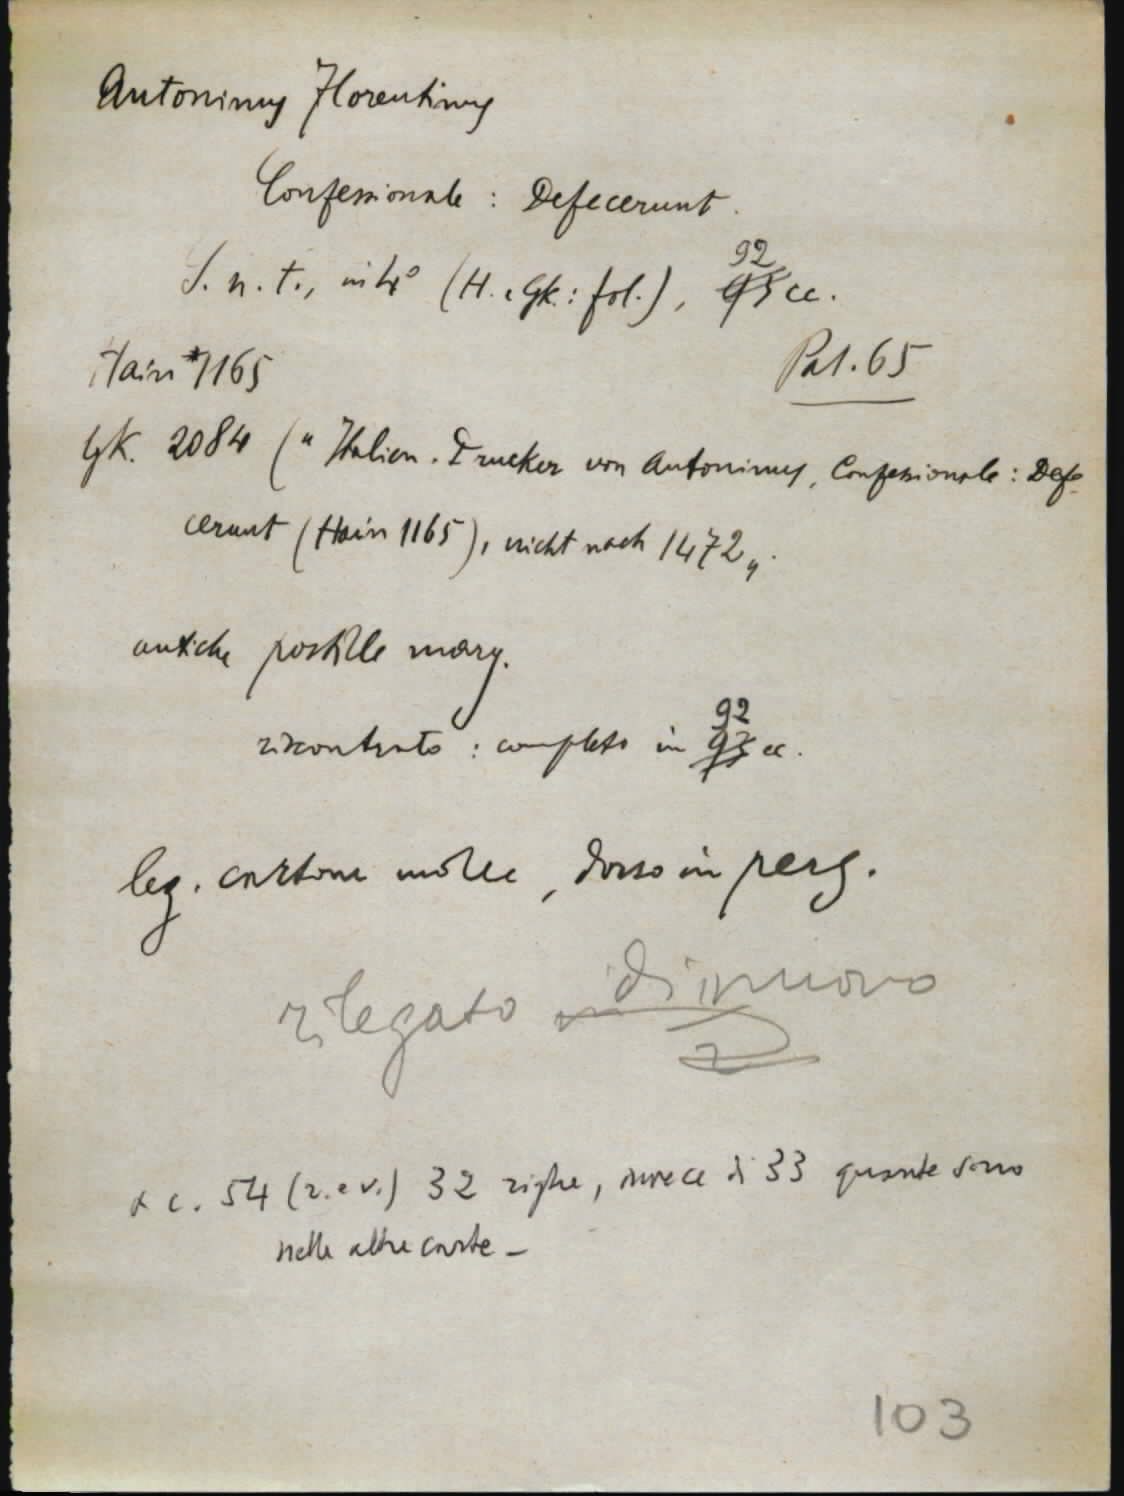 Antoninus Florentinus
Confessionale : Defecerunt.
S. n. t., in 4° (H. e GK.: fol.), 92 93 cc.
Hain *1165
Pal. 65
GK. 2084 („ Italien. Drucker von Antoninus, Confessionale : Defe-
cerunt (Hain 1165), nicht nach 1472„.
antiche postille marg.
riscontrato : completo in 92 93 cc.
leg. cartone molle, dorso in perg.
rilegato di nuovo
a c. 54 (r. e v.) 32 righe, invece di 33 quante sono
nelle altre carte –
103